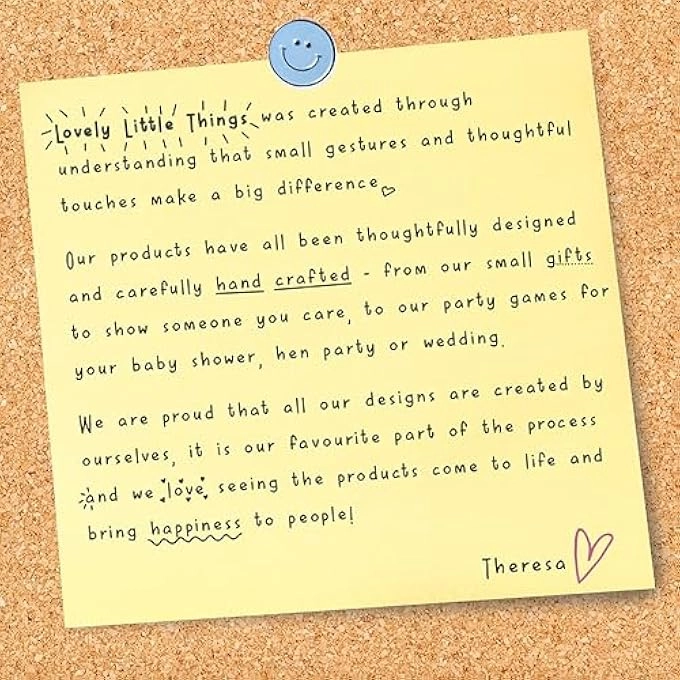 Lovely Little Things was created through
understanding that small gestures and thoughtful
touches make a big difference
Our products have all been thoughtfully designed
and carefully hand crafted - from our small gifts
to show someone you care, to our party games for
your baby shower, hen party or wedding.
We are proud that all our designs are created by
ourselves, it is our favourite part of the process
and we love seeing the products come to life and
bring happiness to people!
Theresa